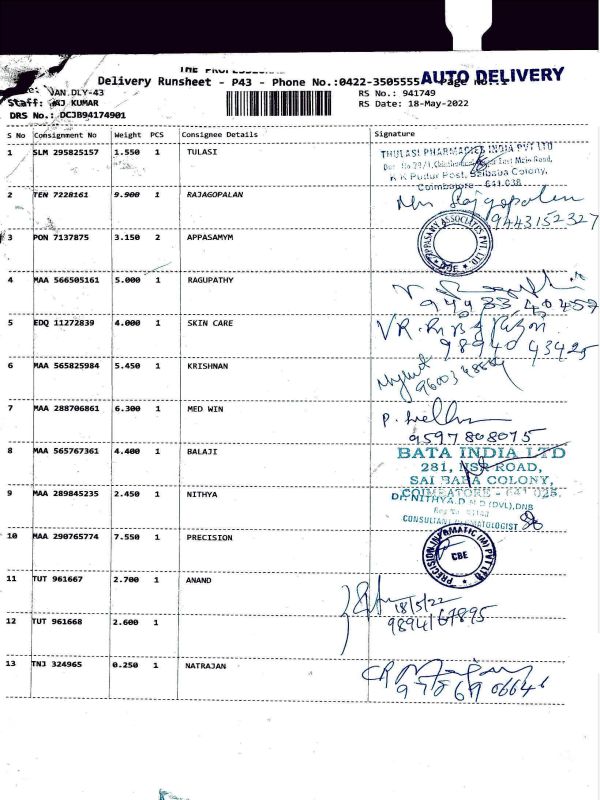 Delivery Runsheet - P43 - Phone No.:0422-3505555
AUTO DELIVERY
VAN.DLY-43
RS No.: 941749
Staff: RAJ KUMAR
RS Date: 18-May-2022
DRS No.: DCJB94174901
S No Consignment No Weight PCS Consignee Details Signature
1 SLM 295825157 1.550 1 TULASI
THULASI PHARMACIES INDIA PVT LTD
K K Pudur Post, Saibaba Colony,
Coimbatore - 641 038
2 TEN 7228161 9.900 1 RAJAGOPALEN
Rajgopalen
9443152327
3 PON 7137875 3.150 2 APPASAMYM
APPASAMY ASSOCIATES PVT. LTD.
4 MAA 566505161 5.000 1 RAGUPATHY
5 EDQ 11272839 4.000 1 SKIN CARE
98940 43425
6 MAA 565825984 5.450 1 KRISHNAN
7 MAA 288706861 6.300 1 MED WIN
9597808075
8 MAA 565767361 4.400 1 BALAJI
BATA INDIA LTD
281, NSR ROAD,
SAI BABA COLONY,
COIMBATORE - 641 025.
9 MAA 289845235 2.450 1 NITHYA
Dr. NITHYA.D M D (DVL),DNB
CONSULTANT DERMATOLOGIST
10 MAA 290765774 7.550 1 PRECISION
PRECISION INFOMATIC (M) PVT LTD
CBE
11 TUT 961667 2.700 1 ANAND
18/5/22
9894167895
12 TUT 961668 2.600 1
13 TNJ 324965 0.250 1 NATRAJAN
9786906646